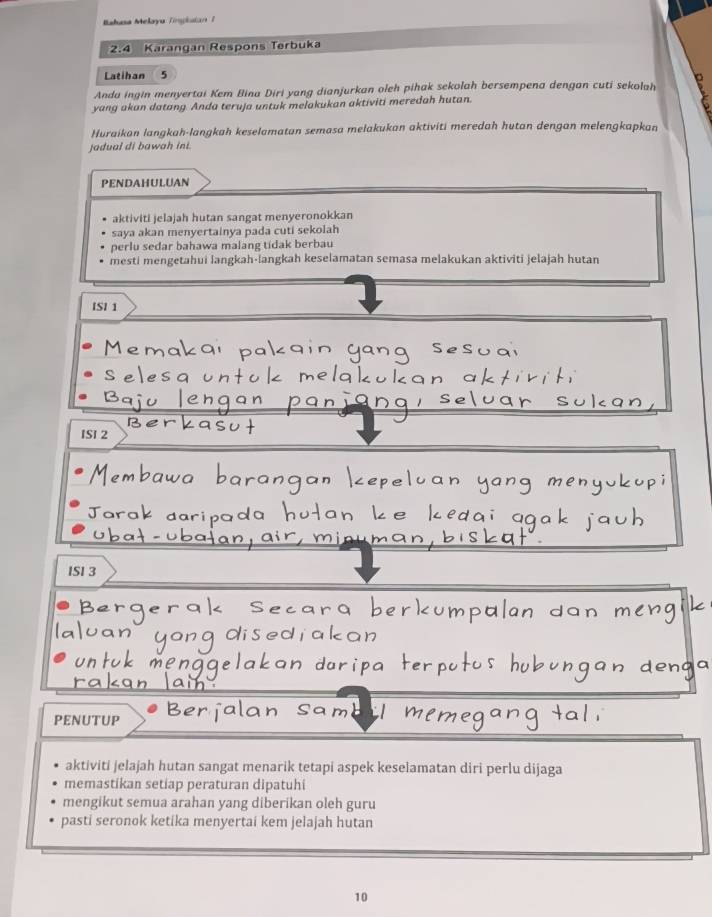 Bahasa Melayu Tingkatan 1
2.4 Karangan Respons Terbuka
Latihan 5
Anda ingin menyertai Kem Bina Diri yang dianjurkan oleh pihak sekolah bersempena dengan cuti sekolah
yang akan datang. Anda teruja untuk melakukan aktiviti meredah hutan.
Huraikan langkah-langkah keselamatan semasa melakukan aktiviti meredah hutan dengan melengkapkan
jadual di bawah ini.
PENDAHULUAN
• aktiviti jelajah hutan sangat menyeronokkan
• saya akan menyertainya pada cuti sekolah
• perlu sedar bahawa malang tidak berbau
• mesti mengetahui langkah-langkah keselamatan semasa melakukan aktiviti jelajah hutan
ISI 1
• Memakai pakain yang sesuai
• selesa untuk melakukan aktiviti
• Baju lengan panjang, seluar sukan,
Berkasut
ISI 2
• Membawa barangan kepeluan yang menyukupi
• Jarak daripada hutan ke kedai agak jauh
• ubat-ubatan, air, minuman, biskat.
ISI 3
• Bergerak secara berkumpalan dan mengik
laluan yang disediakan
• untuk menggelakan daripa terputus hubungan denga
rakan lain.
• Berjalan sambil memegang tali
PENUTUP
• aktiviti jelajah hutan sangat menarik tetapi aspek keselamatan diri perlu dijaga
• memastikan setiap peraturan dipatuhi
• mengikut semua arahan yang diberikan oleh guru
• pasti seronok ketika menyertai kem jelajah hutan
10